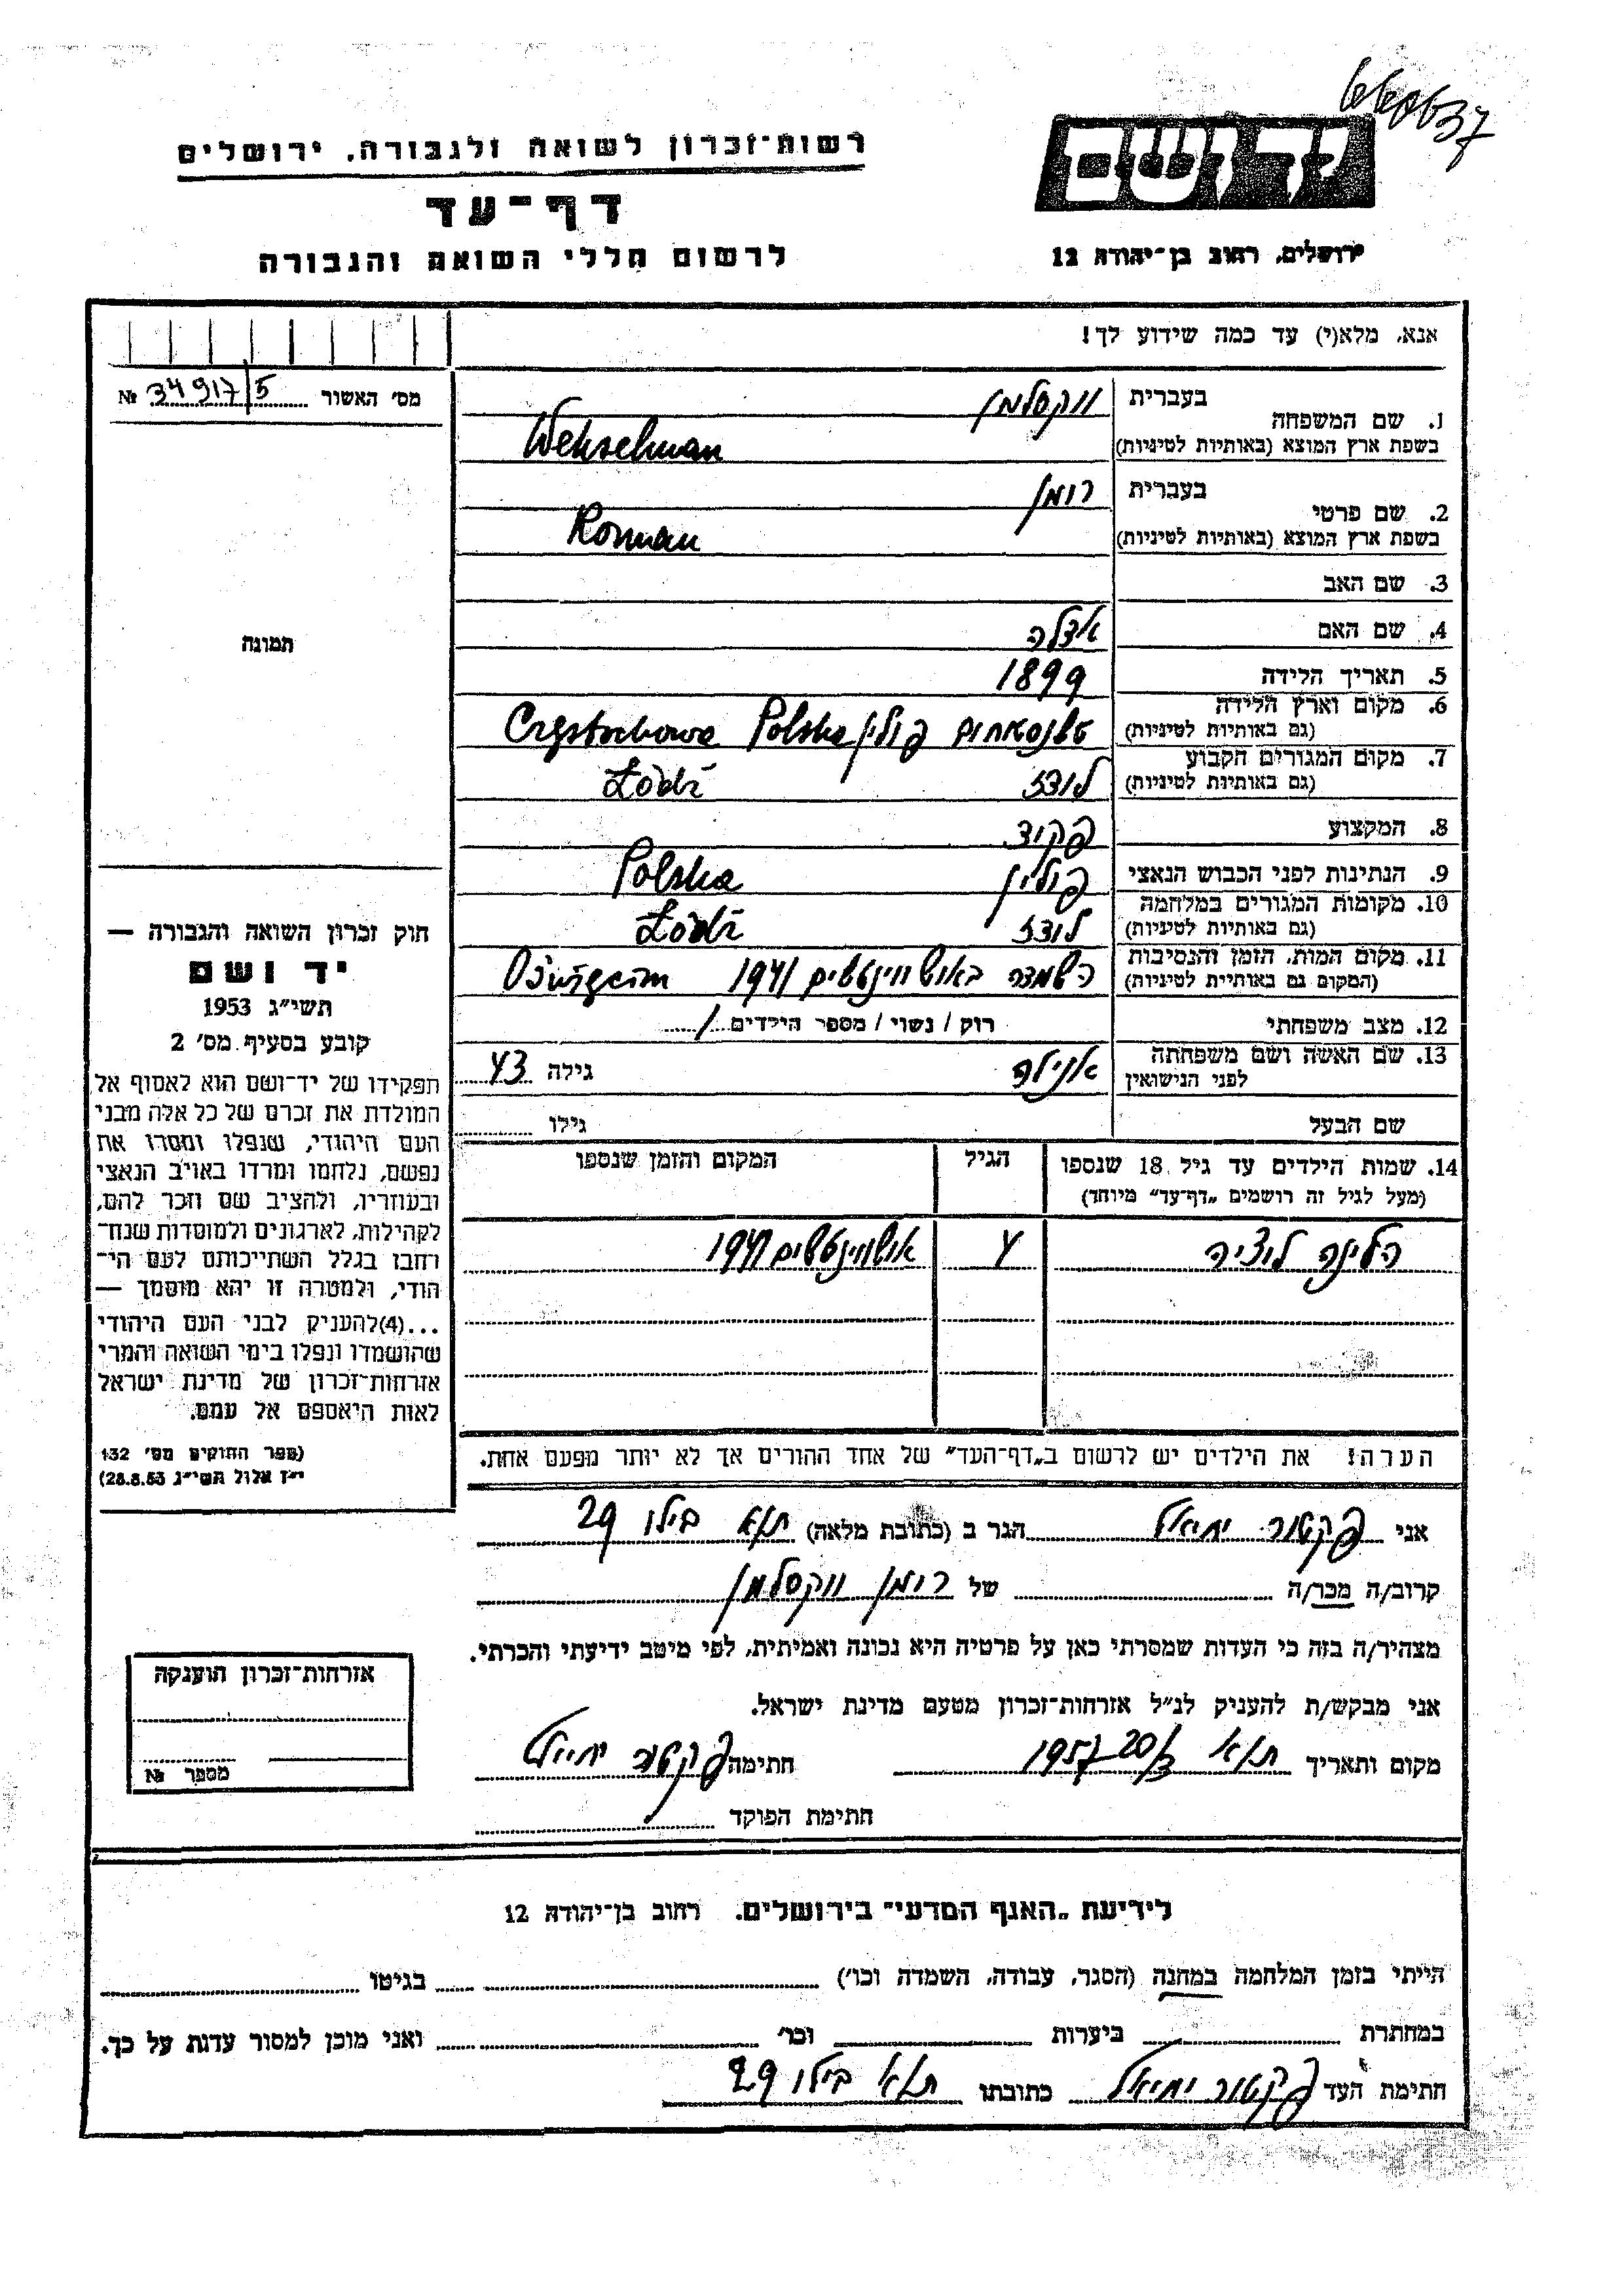 יד ושם
רשות־זכרון לשואה ולגבורה, ירושלים
דף־עד
לרשום חללי השואה והגבורה
ירושלים, רחוב בן־יהודה 12
אנא, מלא(י) עד כמה שידוע לך!
מס' האשור 34917/5 №
1. שם המשפחה
בעברית ווקסלמן
בשפת ארץ המוצא (באותיות לטיניות) Wekselman
2. שם פרטי
בעברית רומן
בשפת ארץ המוצא (באותיות לטיניות) Roman
3. שם האב
4. שם האם אדלה
5. תאריך הלידה 1899
6. מקום וארץ הלידה
(גם באותיות לטיניות) פולין Częstochowa Polska
7. מקום המגורים הקבוע
(גם באותיות לטיניות) לודז Łódź
8. המקצוע פקיד
9. הנתינות לפני הכבוש הנאצי פולין Polska
10. מקומות המגורים במלחמה
(גם באותיות לטיניות) לודז Łódź
11. מקום המות, הזמן והנסיבות
(המקום גם באותיית לטיניות) 1941
12. מצב משפחתי רוק / נשוי / מספר הילדים 1
13. שם האשה ושם משפחתה
לפני הנישואין גילה 43
שם הבעל גילו
14. שמות הילדים עד גיל 18 שנספו הגיל המקום והזמן שנספו
(מעל לגיל זה רושמים „דף־עד" מיוחד)
הלינה לוציה 4 1941
הערה! את הילדים יש לרשום ב„דף־העד" של אחד ההורים אך לא יותר מפעם אחת.
תמונה
חוק זכרון השואה והגבורה —
יד ושם
תשי"ג 1953
קובע בסעיף מס' 2
תפקידו של יד־ושם הוא לאסוף אל
המולדת את זכרם של כל אלה מבני
העם היהודי, שנפלו ומסרו את
נפשם, נלחמו ומרדו באויב הנאצי
ובעוזריו, ולהציב שם וזכר להם,
לקהילות, לארגונים ולמוסדות שנח־
רחבו בגלל השתייכותם לעם הי־
הודי, ולמטרה זו יהא מוסמך —
...(4)להעניק לבני העם היהודי
שהושמדו ונפלו בימי השואה והמרי
אזרחות־זכרון של מדינת ישראל
לאות היאספם אל עמם.
(ספר החוקים מס' 132
י"ז אלול תשי"ג 28.8.53)
אני פקטור יחיאל הגר ב (כתובת מלאה) ת"א בילו 29
קרוב/ה מכר/ה של רומן ווקסלמן
מצהיר/ה בזה כי העדות שמסרתי כאן על פרטיה היא נכונה ואמיתית, לפי מיטב ידיעתי והכרתי.
אני מבקש/ת להעניק לנ"ל אזרחות־זכרון מטעם מדינת ישראל.
מקום ותאריך ת"א 20/3 1957 חתימה פקטור יחיאל
חתימת הפוקד
אזרחות־זכרון הוענקה
מספר №
לידיעת „האגף המדעי" בירושלים, רחוב בן־יהודה 12
הייתי בזמן המלחמה במחנה (הסגר, עבודה, השמדה וכו') בגיטו
במחתרת ביערות וכו' ואני מוכן למסור עדות על כך.
חתימת העד פקטור יחיאל כתובתו ת"א בילו 29